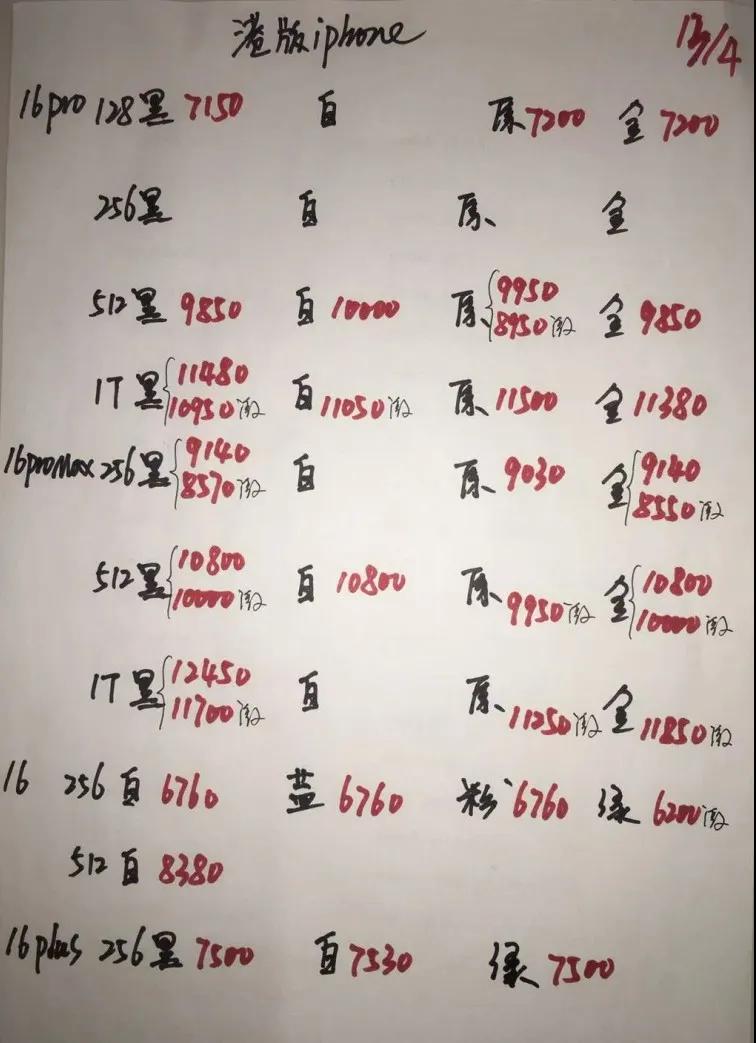 港版iphone 13/4
16pro 128黑 7150 白 原 7200 金 7200
256黑 白 原 金
512黑 9850 白 10000 原 { 9950 8950激 金 9850
1T 黑 { 11480 10950激 白 11050激 原 11500 金 11380
16promax 256黑 { 9140 8570激 白 原 9030 金 { 9140 8550激
512黑 { 10800 10000激 白 10800 原 9950激 金 { 10800 10000激
1T 黑 { 12450 11700激 白 原 11250激 金 11850激
16 256 白 6760 蓝 6760 粉 6760 绿 6200激
512 白 8380
16plus 256黑 7500 白 7530 绿 7500